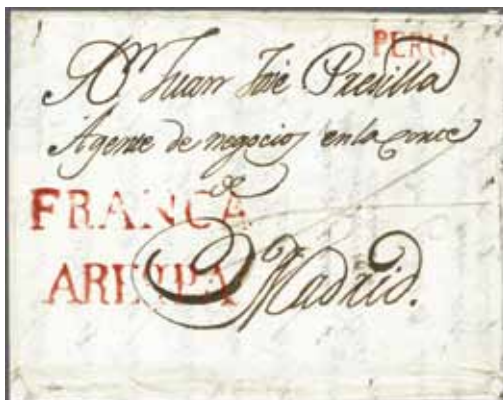 PERU
A Dn Juan José Presilla
Agente de negocios en la corte
de
FRANCA
AREQPA
Madrid.